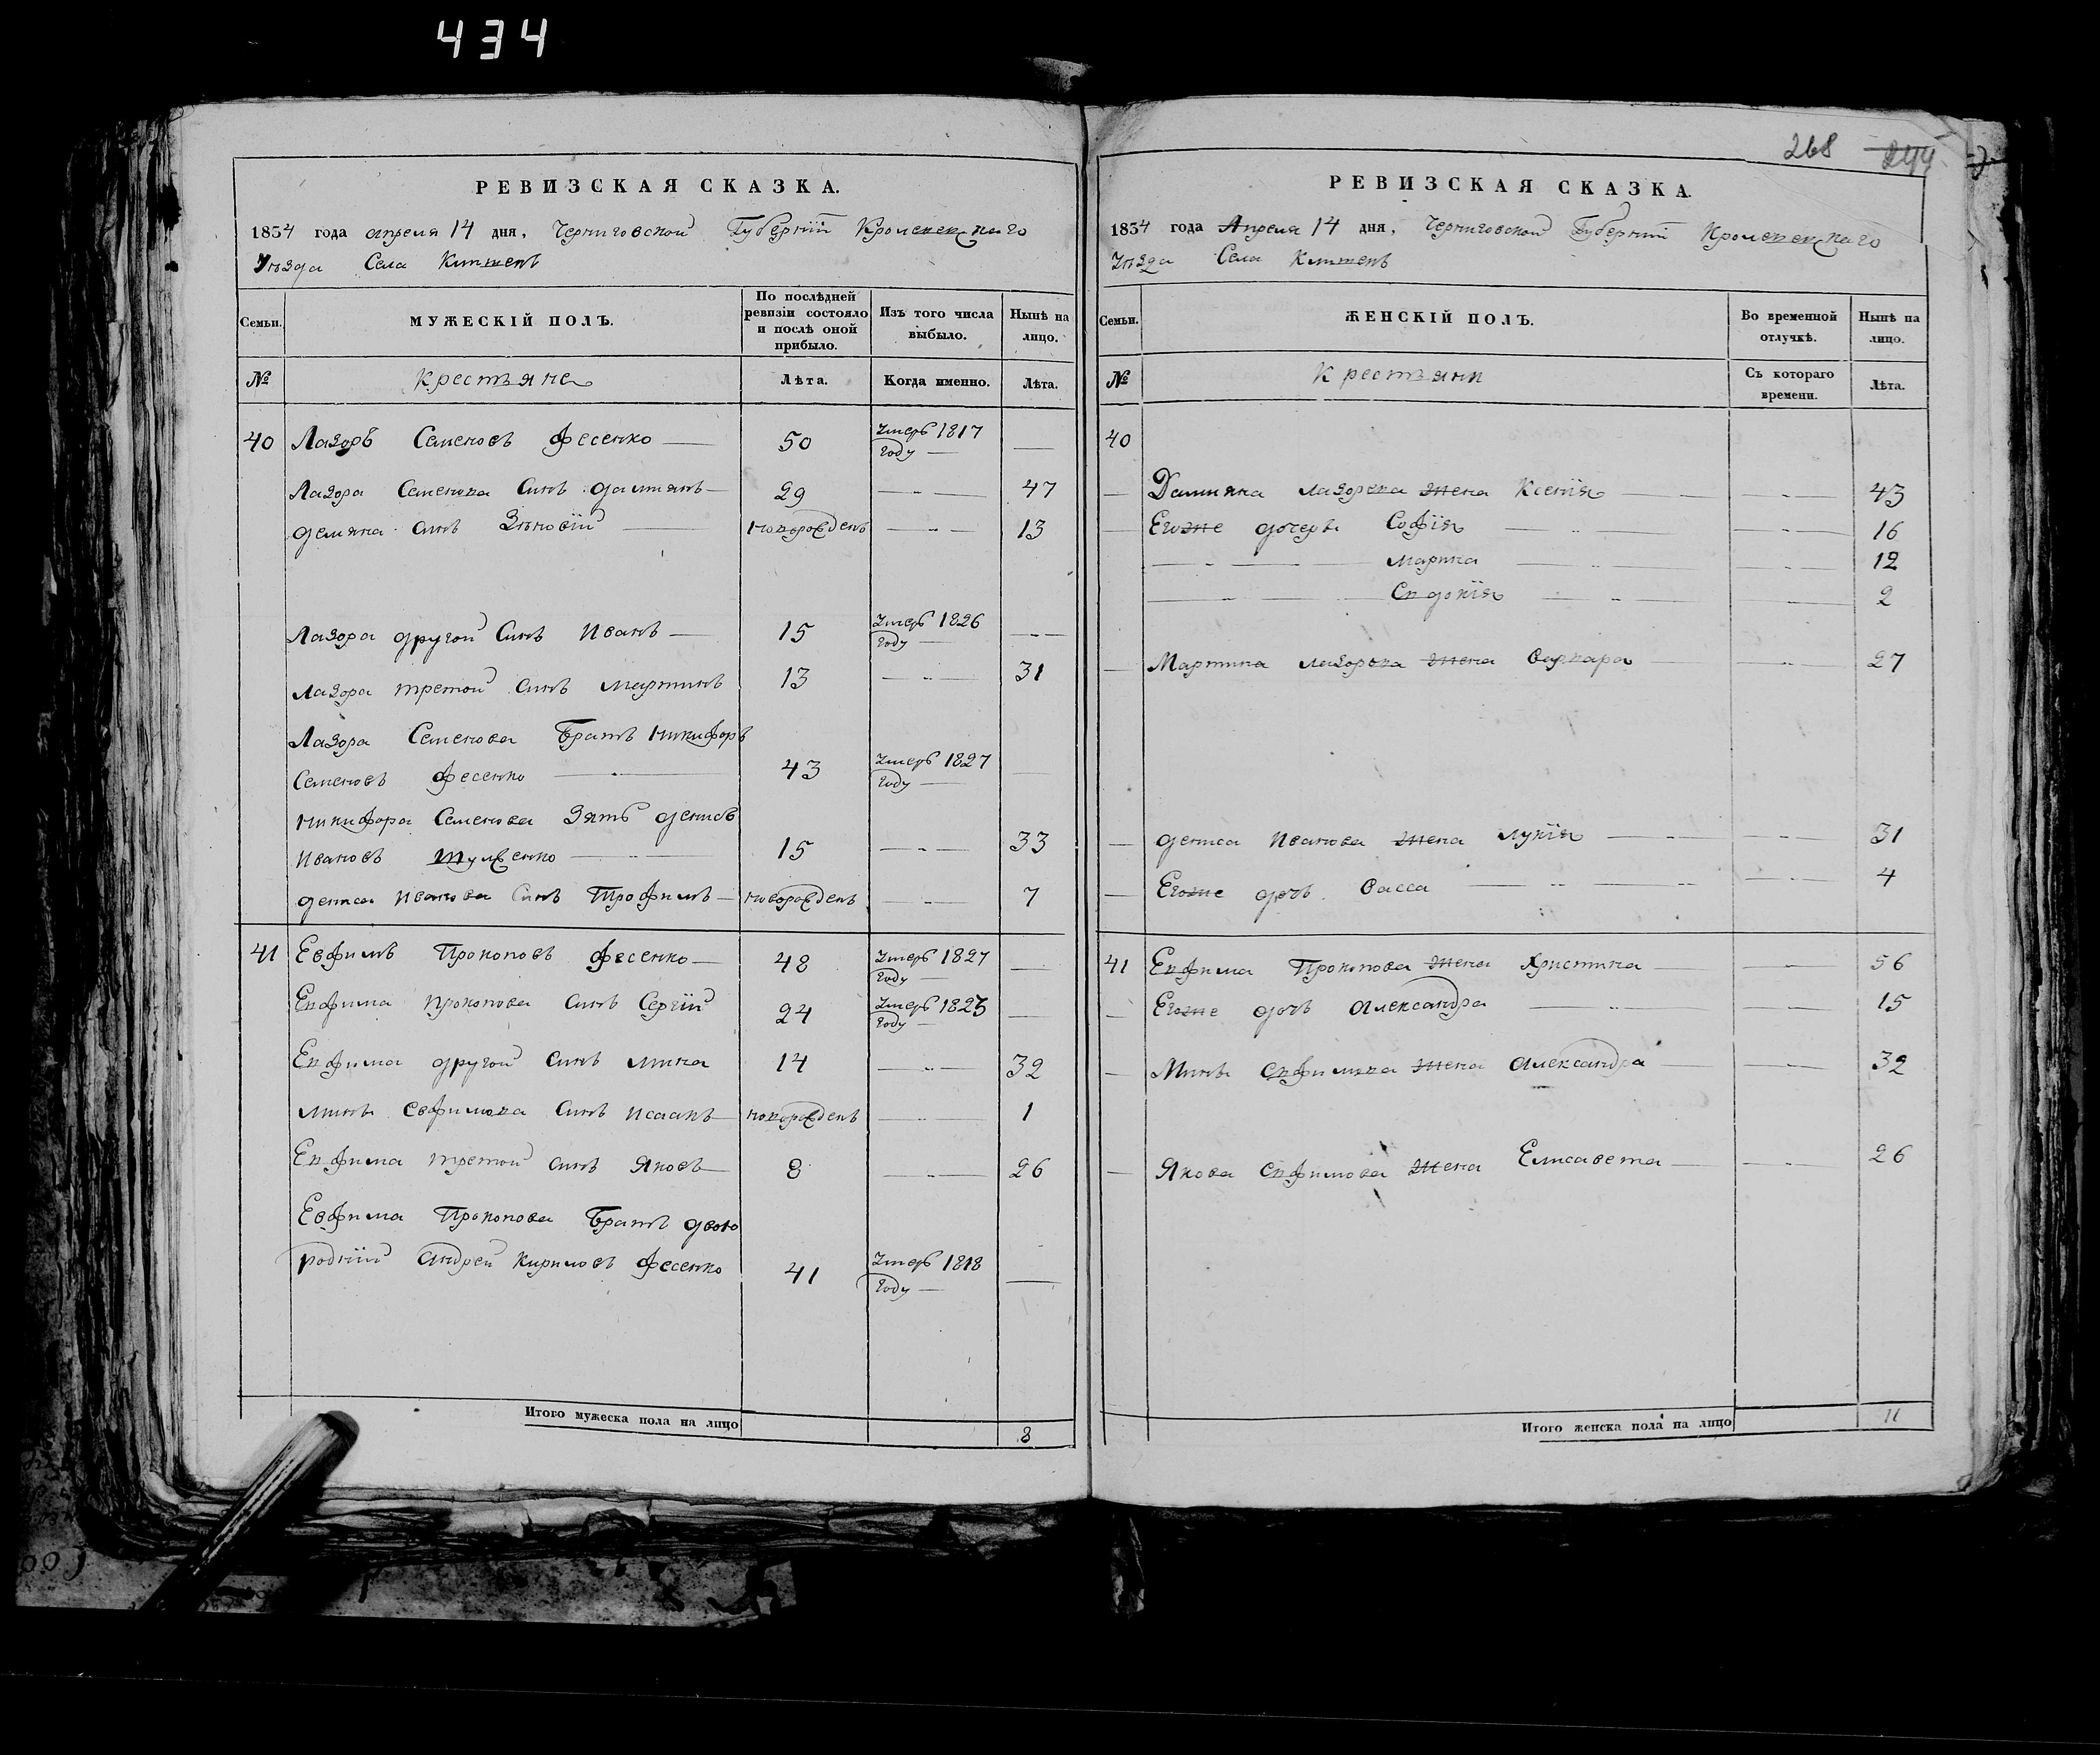 434
РЕВИЗСКАЯ СКАЗКА.
1834 года апреля 14 дня, Черниговской Губерніи Кролевецкаго
Уѣзда Села
Семьи. МУЖЕСКІЙ ПОЛЪ. По послѣдней ревизіи состояло и послѣ оной прибыло. Изъ того числа выбыло. Нынѣ на лицо.
№ Крестьяне Лѣта. Когда именно. Лѣта.
40 Лазоръ Семеновъ Фесенко — 50 Умеръ 1817 году — —
Лазора Семенова Синъ Дамианъ — 29 — 47
Демяна Синъ Зѣновій — новорожденъ — 13
Лазора другой Синъ Иванъ — 15 Умеръ 1826 году — —
Лазора третой Синъ Мартинъ 13 — 31
Лазора Семенова Братъ Никифоръ
Семеновъ Фесенко — 43 Умеръ 1827 году —
Никифора Семенова Зять Денисъ
Ивановъ — 15 — 33
Дениса Иванова Синъ Трофимъ — новорожденъ — 7
41 Евфимъ Прокоповъ Фесенко — 48 Умеръ 1827 году — —
Евфима Прокопова Синъ Сергій 24 Умеръ 1823 году — —
Евфима другой Синъ Мина 14 — 32
Минѣ Евфимова Синъ Исаакъ — новорожденъ — 1
Евфима третой Синъ Яковъ — 8 — 26
Евфима Прокопова Братъ двою
родній Андрей Кириловъ Фесенко 41 Умеръ 1818 году — —
Итого мужеска пола на лицо 8
268 244
РЕВИЗСКАЯ СКАЗКА.
1834 года Апреля 14 дня, Черниговской Губерніи Кролевецкаго
Уѣзда Села
Семьи. ЖЕНСКІЙ ПОЛЪ. Во временной отлучкѣ. Нынѣ на лицо.
№ Крестьяни Съ котораго времени. Лѣта.
40
— Дамияна Лазорева жена Ксенія — 43
— Егоже дочерѣ Софія — 16
— Марина — 12
— Євдокія — 2
— Мартина Лазорова жена Варвара — 27
— Дениса Иванова жена Лукія — 31
— Егоже дочь Васса — 4
41 Евфима Прокопова жена Христина — 56
— Егоже дочь Александра — 15
— Минѣ Евфимова жена Александра — 32
— Якова Евфимова жена Елисавета — 26
Итого женска пола на лицо 11